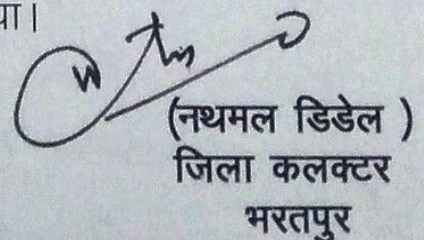 या।
(नथमल डिडेल )
जिला कलक्टर
भरतपुर